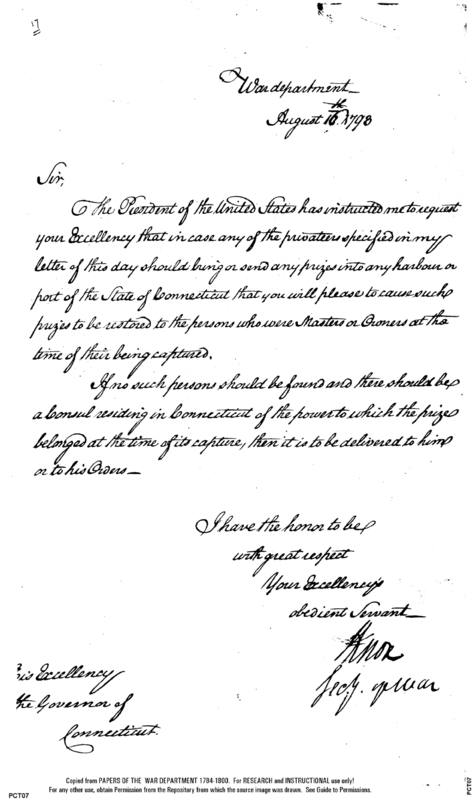 War department
August 16.th 1793
Sir,
The President of the United States has instructed me to request
your Excellency that in case any of the privateers specified in my
letter of this day should bring or send any prizes into any harbour or
port of the State of Connecticut that you will please to cause such
prizes to be restored to the persons who were Masters or Owners at the
time of their being captured.
If no such persons should be found and there should be
a Consul residing in Connecticut of the power to which the prize
belonged at the time of its capture, then it is to be delivered to him
or to his Orders—
I have the honor to be
with great respect
Your Excellency's
obedient Servant
HKnox
Secy. of War
his Excellency
the Governor of
Connecticut.
Copied from PAPERS OF THE WAR DEPARTMENT 1784-1800. For RESEARCH and INSTRUCTIONAL use only!
For any other use, obtain Permission from the Repository from which the source image was drawn. See Guide to Permissions.
PCT07